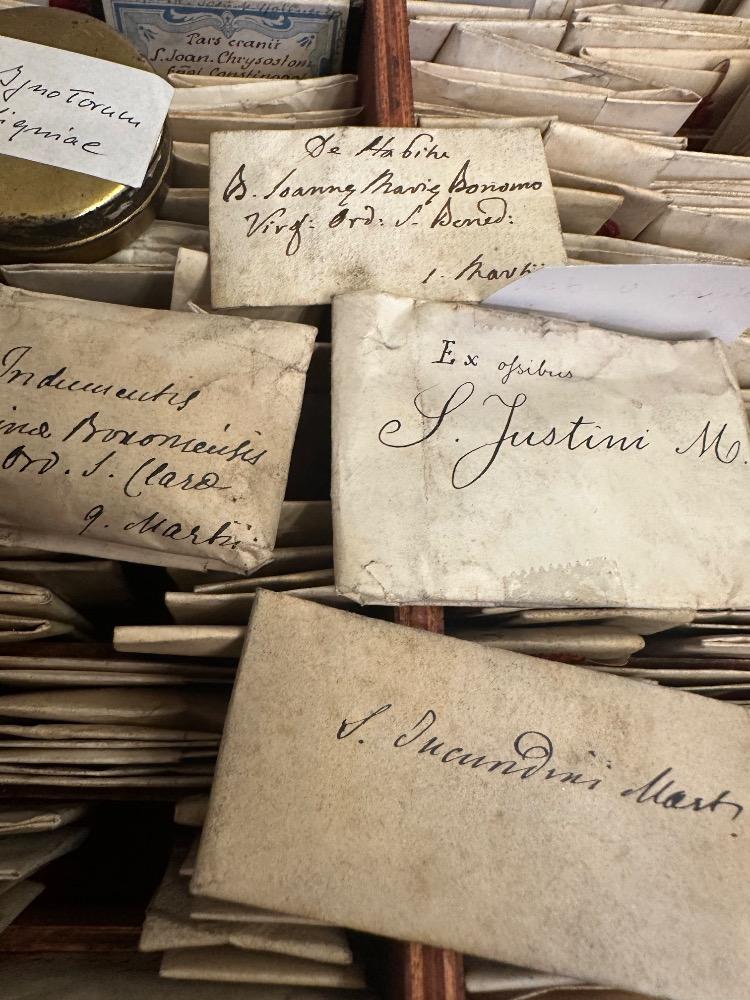 Pars cranii
S. Joan. Chrysostom
Constinop
ignotorum
De Habitu
B. Joannę Marię Bonomo
Virg: Ord: S. Bened:
1. Martii
Indumentis
Bononiensis
Ord. S. Claræ
9. Martii
Ex ossibus
S. Justini M.
S. Jucundini Mart.